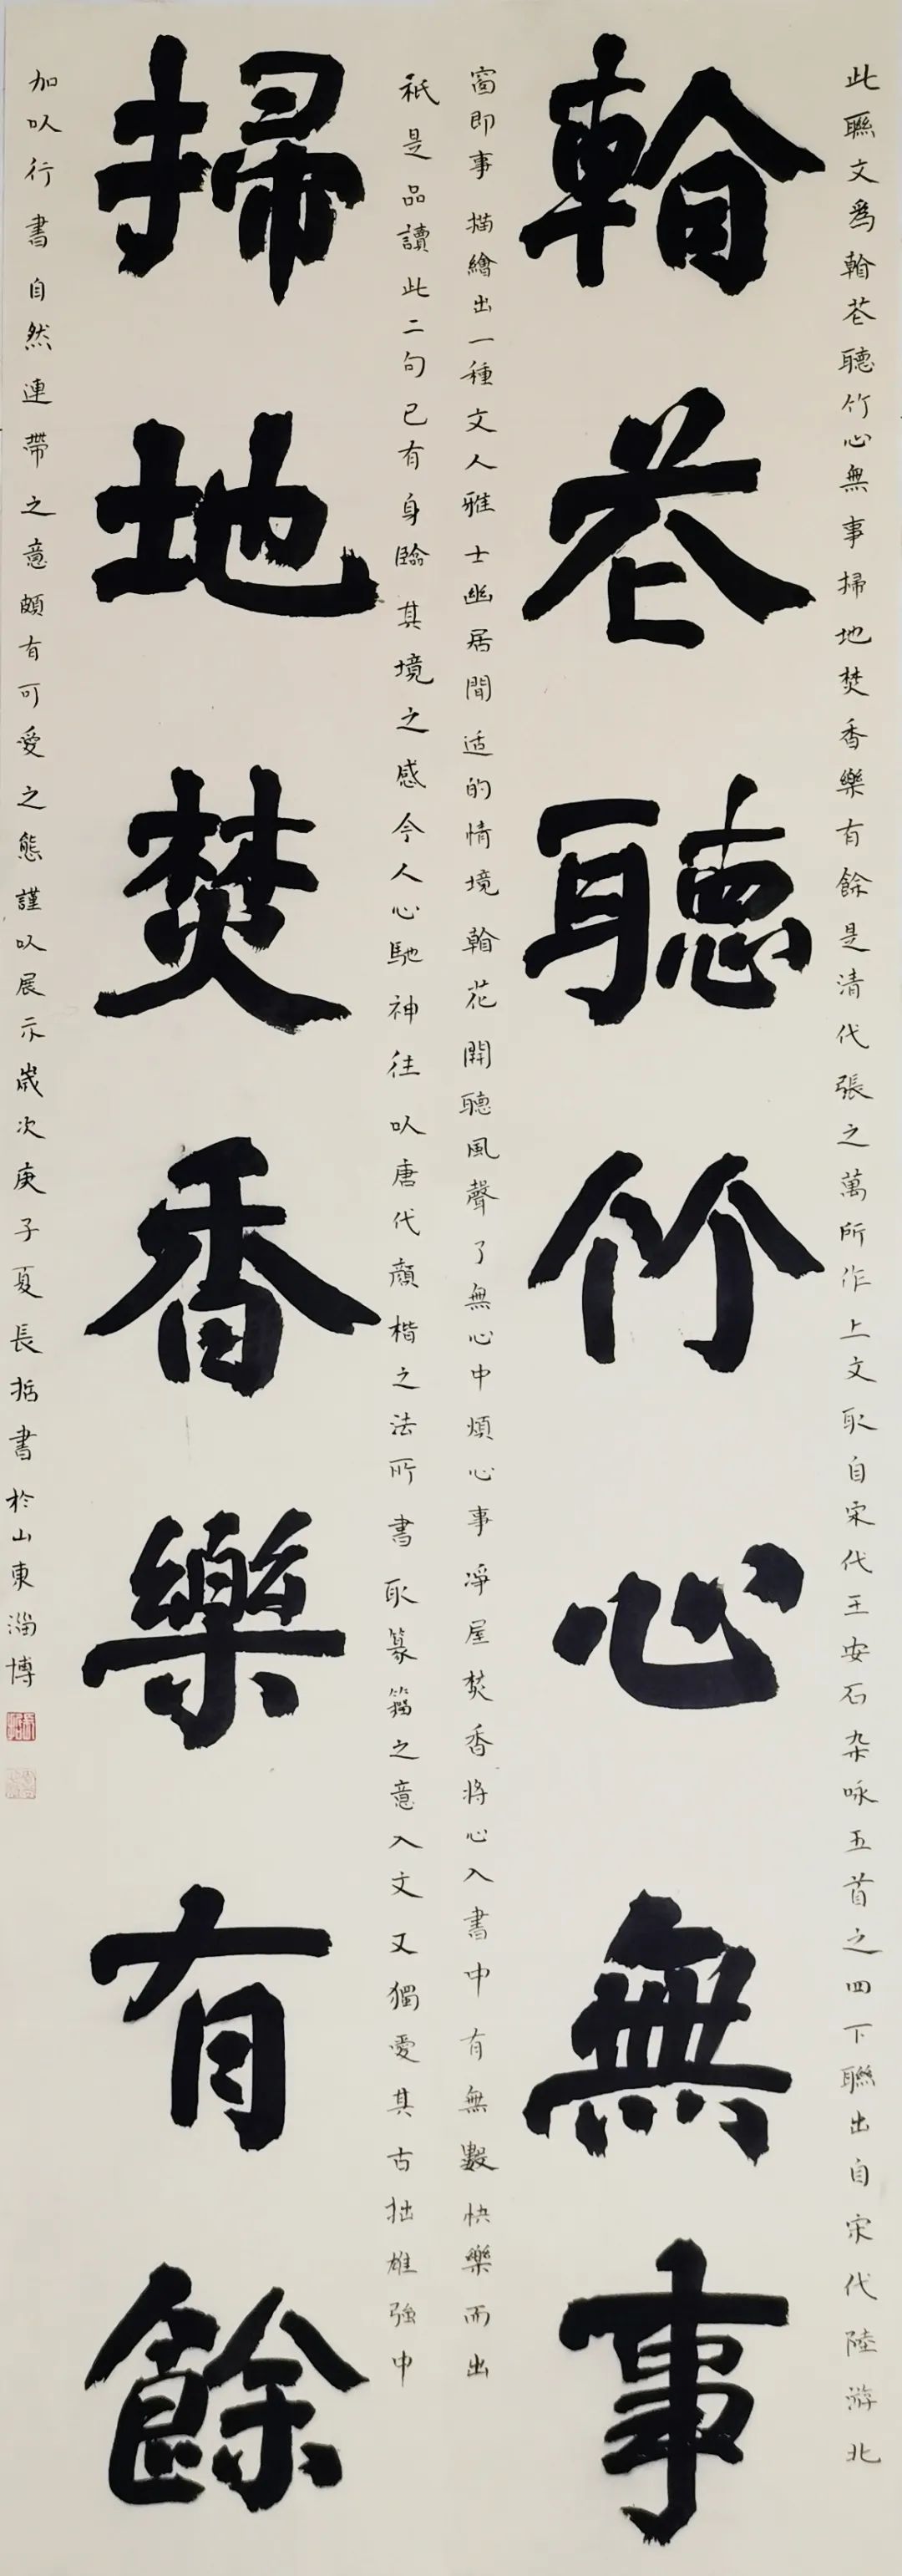 此聯文爲翰芲聽竹心無事掃地焚香樂有餘是清代張之萬所作上文取自宋代王安石杂咏五首之四下聯出自宋代陸游北
翰芲聽竹心無事
窗即事描繪出一種文人雅士幽居閒适的情境翰花開聽風聲了無心中煩心事淨屋焚香将心入書中有無數快樂而出
祇是品讀此二句已有身臨其境之感令人心馳神往以唐代顏楷之法所書取篆籀之意入文又獨愛其古拙雄強中
掃地焚香樂有餘
加以行書自然連帶之意頗有可愛之態謹以展示嵗次庚子夏長括書於山東淄博